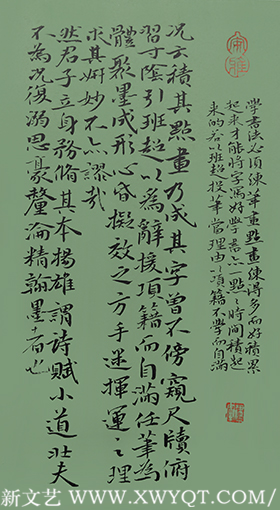 况云積其點畫乃成其字曾不傍窺尺牘俯
習寸陰引班超以為辭援項籍而自滿任筆為
體聚墨成形心昏擬效之方手迷揮運之理
求其妍妙不亦謬哉
然君子立身務修其本揚雄謂詩賦小道壯夫
不為况復溺思毫釐淪精翰墨者也
學書法必須練筆重點畫練得多而好積累
起來才能將字寫好學書一點一點時間積起
來的若以班超投筆當理由以項籍不學而自滿
新文艺 www.XWYQT.com